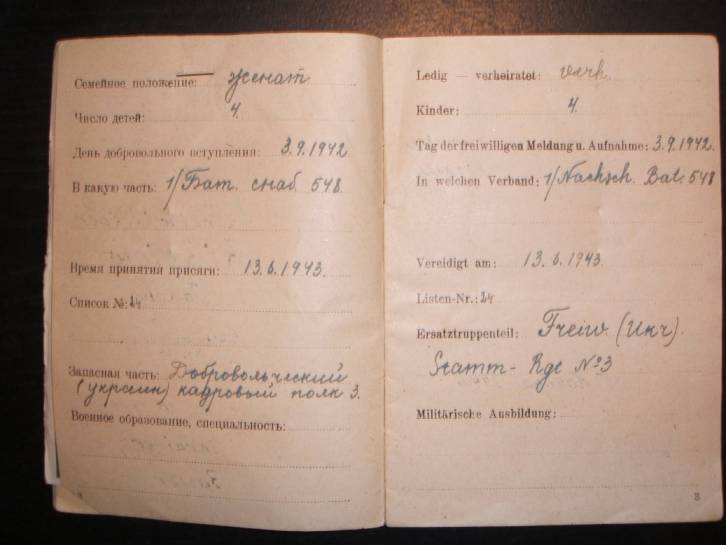 Семейное положение: женат.
Число детей: 4.
День добровольного вступления: 3.9.1942
В какую часть: 1/Бат. снаб. 548.
Время принятия присяги: 13.6.1943.
Список №: 24
Запасная часть: Добровольческий
(украин) кадровый полк 3.
Военное образование, специальность:
Ledig — verheiratet: verh.
Kinder: 4.
Tag der freiwilligen Meldung u. Aufnahme: 3.9.1942.
In welchen Verband: 1/Nachsch. Bat. 548
Vereidigt am: 13.6.1943.
Listen-Nr.: 24
Ersatztruppenteil: Freiw. (Укр).
Stamm- Rgt №3
Militärische Ausbildung:
3